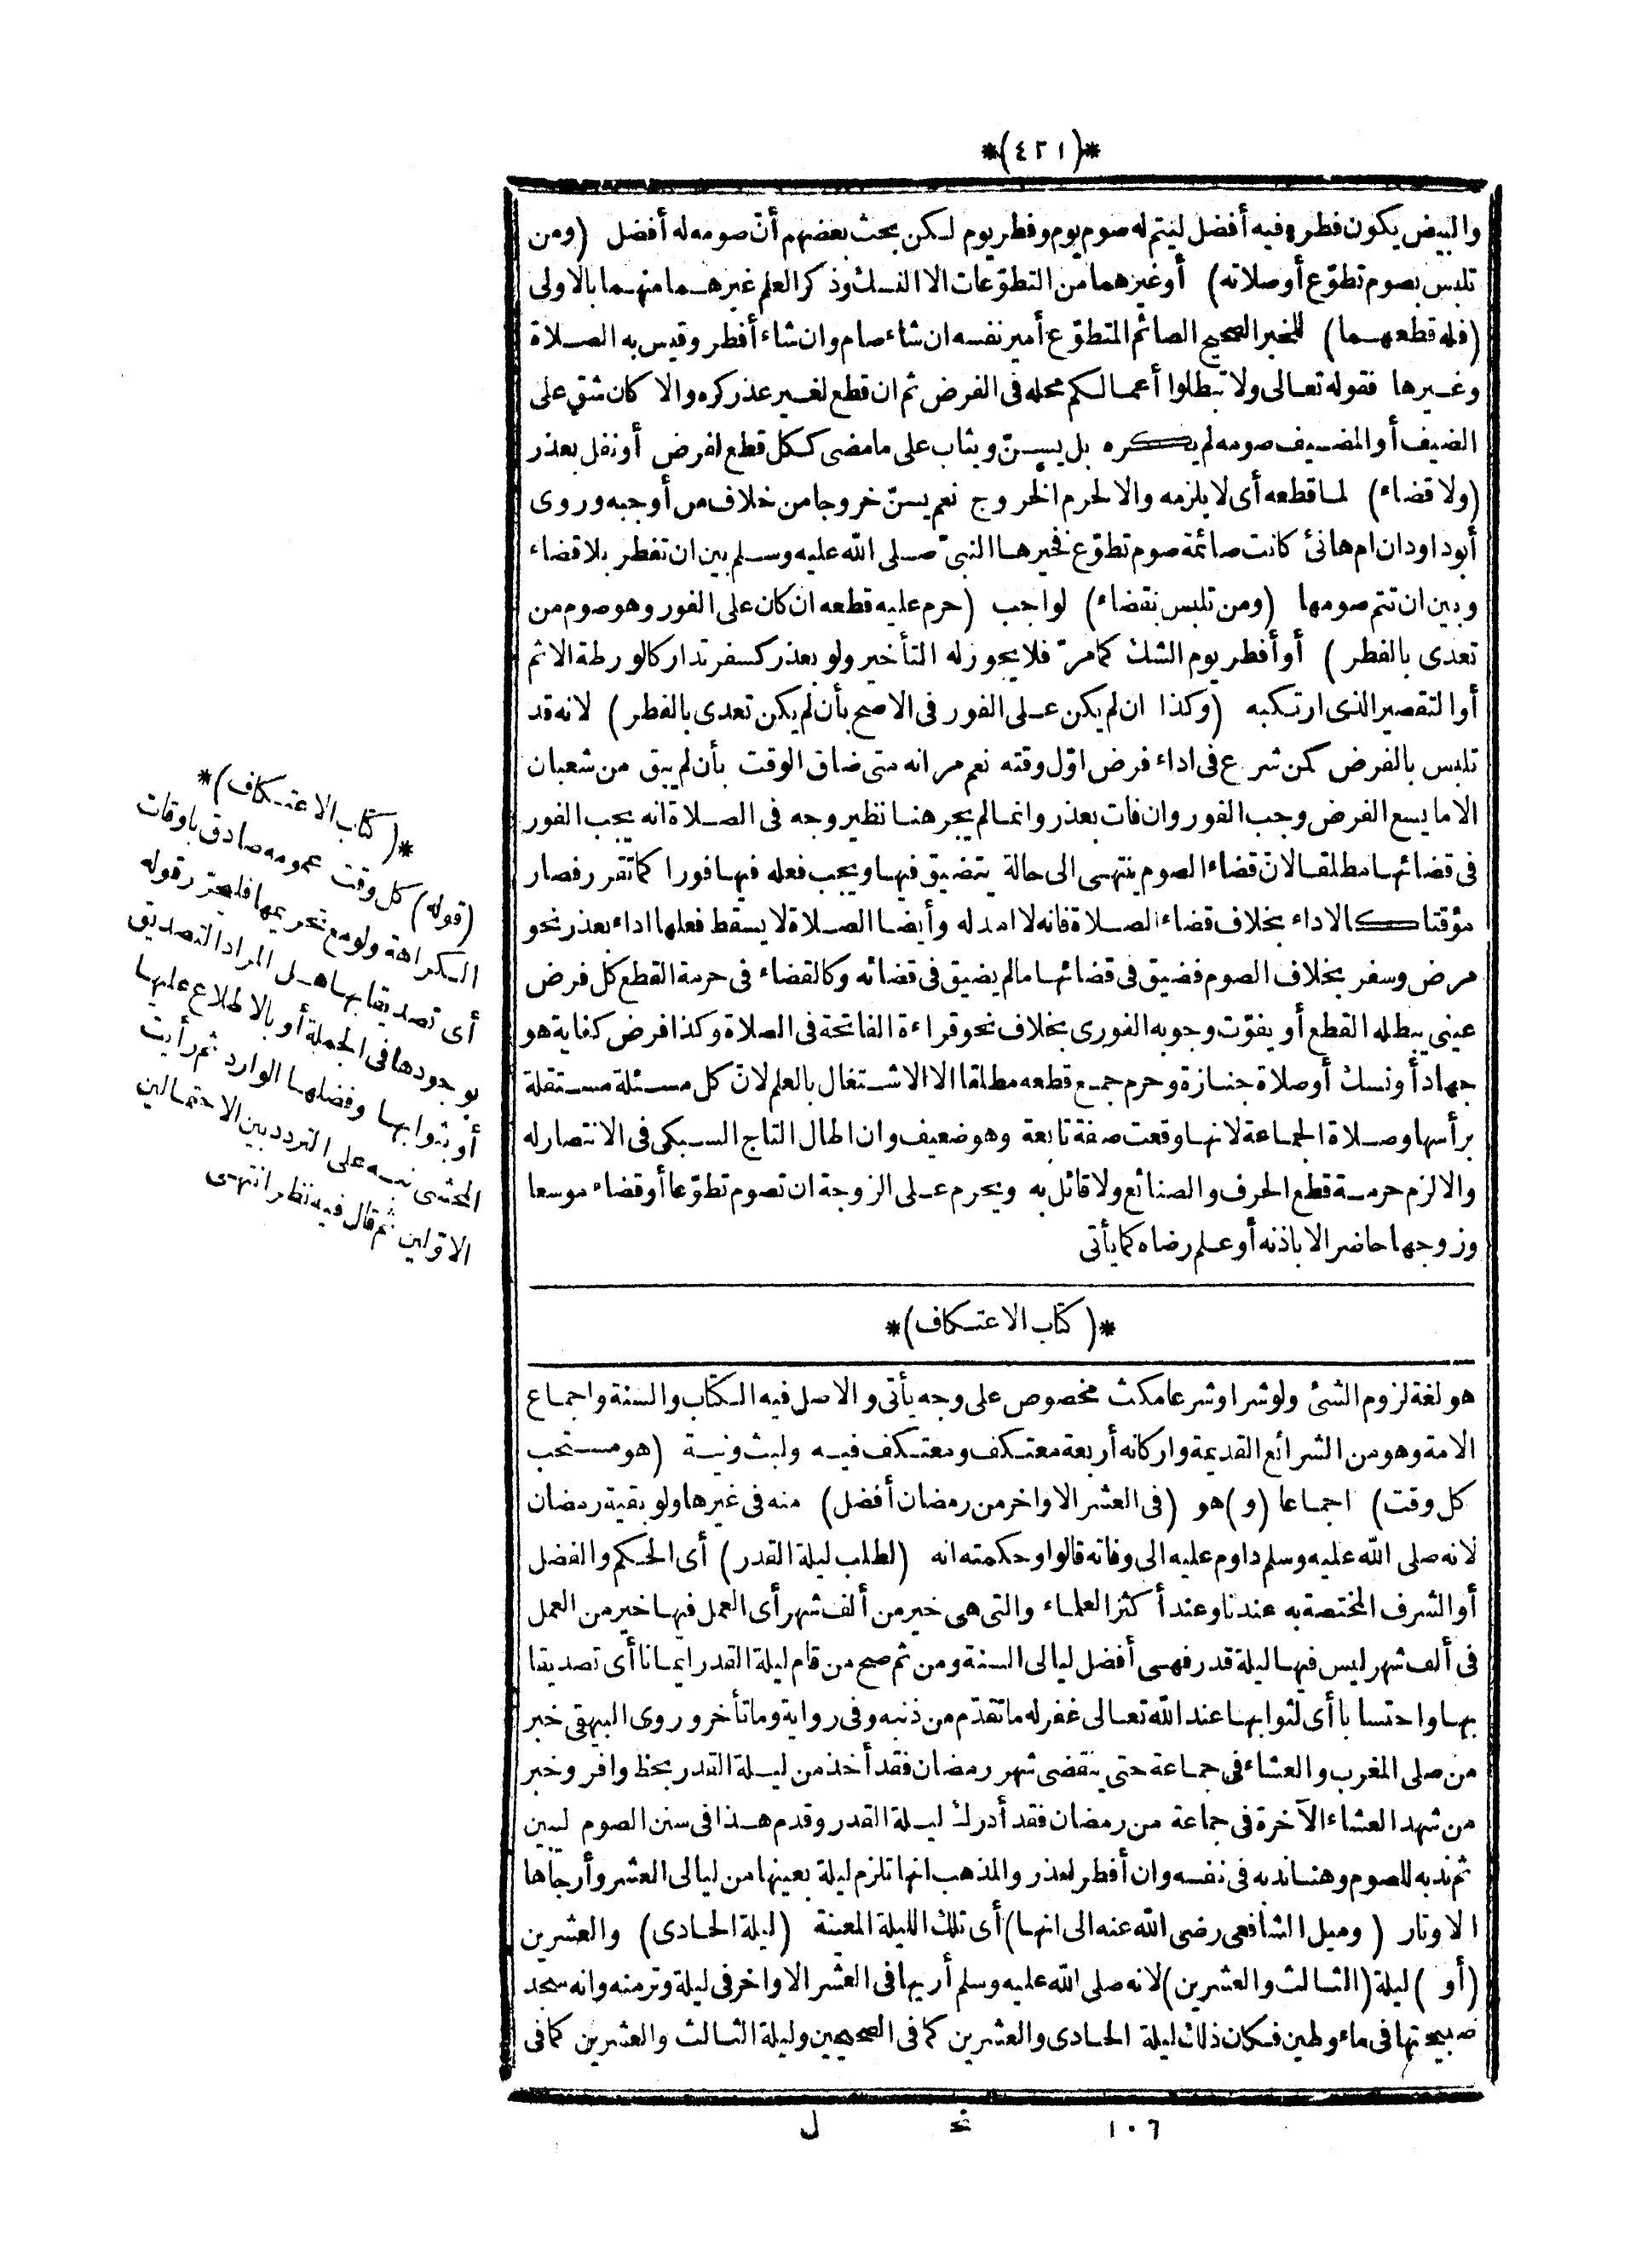 *(٤٢١)*
والبيض يكون فطره فيه أفضل ليتم له صوم يوم وفطر يوم لكن بحث بعضهم أنّ صومه له أفضل (ومن
تلبس بصوم تطوّع أو صلاته) أو غيرهما من التطوّعات الا النسك وذكر العلم غيرهما منهما بالاولى
(فله قطعهما) للخبر الصحيح الصائم المتطوّع أمير نفسه ان شاء صام وان شاء أفطر وقيس به الصلاة
وغيرها فقوله تعالى ولا تبطلوا أعمالكم محله فى الفرض ثم ان قطع لغير عذر كره والا كان شق على
الضيف أو المضيف صومه لم يكره بل يسنّ ويثاب على ما مضى ككل قطع لفرض أو نفل بعذر
(ولا قضاء) لما قطعه أى لا يلزمه والا لحرم الخروج نعم يسنّ خروجا من خلاف من أوجبه وروى
أبو داود ان ام هانئ كانت صائمة صوم تطوّع فخيرها النبىّ صلى الله عليه وسلم بين ان تفطر بلا قضاء
وبين ان تتم صومها (ومن تلبس بقضاء) لواجب (حرم عليه قطعه ان كان على الفور وهو صوم من
تعدى بالفطر) أو أفطر يوم الشك كما مرّ فلا يجوز له التأخير ولو بعذر كسفر تداركا لورطة الاثم
أو التقصير الذى ارتكبه (وكذا ان لم يكن على الفور فى الاصح بأن لم يكن تعدى بالفطر) لانه قد
تلبس بالفرض كمن شرع فى اداء فرض اوّل وقته نعم مر انه متى ضاق الوقت بأن لم يبق من شعبان
الا ما يسع الفرض وجب الفور وان فات بعذر وانما لم يجر هنا نظير وجه فى الصلاة انه يجب الفور
فى قضائها مطلقا لانّ قضاء الصوم ينتهى الى حالة يتضيق فيها ويجب فعله فيها فورا كما تقرر فصار
مؤقتا كالاداء بخلاف قضاء الصلاة فانه لا امد له وأيضا الصلاة لا يسقط فعلها اداء بعذر نحو
مرض وسفر بخلاف الصوم فضيق فى قضائها ما لم يضيق فى قضائه وكالقضاء فى حرمة القطع كل فرض
عينى يبطله القطع أو يفوّت وجوبه الفورى بخلاف نحو قراءة الفاتحة فى الصلاة وكذا فرض كفاية هو
جهاد أو نسك أو صلاة جنازة وحرم جمع قطعه مطلقا الا الاشتغال بالعلم لانّ كل مسئلة مستقلة
برأسها وصلاة الجماعة لانها وقعت صفة تابعة وهو ضعيف وان اطال التاج السبكى فى الانتصار له
والا لزم حرمة قطع الحرف والصنائع ولا قائل به ويحرم على الزوجة ان تصوم تطوّعا أو قضاء موسعا
وزوجها حاضر الا باذنه أو علم رضاه كما يأتى
*(كتاب الاعتكاف)*
هو لغة لزوم الشئ ولو شرا وشرعا مكث مخصوص على وجه يأتى والاصل فيه الكتاب والسنة واجماع
الامة وهو من الشرائع القديمة واركانه أربعة معتكف ومعتكف فيه ولبث ونية (هو مستحب
كل وقت) اجماعا (و) هو (فى العشر الاواخر من رمضان أفضل) منه فى غيرها ولو بقية رمضان
لانه صلى الله عليه وسلم داوم عليه الى وفاته قالوا وحكمته انه (لطلب ليلة القدر) أى الحكم والفضل
أو الشرف المختصة به عندنا وعند أكثر العلماء والتى هى خير من ألف شهر أى العمل فيها خير من العمل
فى ألف شهر ليس فيها ليلة قدر فهى أفضل ليالى السنة ومن ثم صح من قام ليلة القدر ايمانا أى تصديقا
بها واحتسابا أى لثوابها عند الله تعالى غفر له ما تقدّم من ذنبه وفى رواية وما تأخر وروى البيهقى خبر
من صلى المغرب والعشاء فى جماعة حتى ينقضى شهر رمضان فقد أخذ من ليلة القدر بحظ وافر وخبر
من شهد العشاء الآخرة فى جماعة من رمضان فقد أدرك ليلة القدر وقدم هذا فى سنن الصوم ليبين
ثم ندبه للصوم وهنا ندبه فى نفسه وان أفطر لعذر والمذهب انها تلزم ليلة بعينها من ليالى العشر وأرجاها
الاوتار (وميل الشافعى رضى الله عنه الى انها) أى تلك الليلة المعينة (ليلة الحادى) والعشرين
(أو) ليلة (الثالث والعشرين) لانه صلى الله عليه وسلم أريها فى العشر الاواخر فى ليلة وتر منه وانه سجد
صبيحتها فى ماء وطين فكان ذلك ليلة الحادى والعشرين كما فى الصحيحين وليلة الثالث والعشرين كما فى
١٠٦ نح ل
*(كتاب الاعتكاف)*
(قوله) كل وقت عمومه صادق باوقات
الكراهة ولو مع تحريمها فليحرّر قوله
أى تصديقا بها هل المراد التصديق
بوجودها فى الجملة أو بالاطلاع عليها
أو بثوابها وفضلها الوارد ثم رأيت
المحشى نبه على التردد بين الاحتمالين
الاوّلين ثم قال فيه نظر انتهى